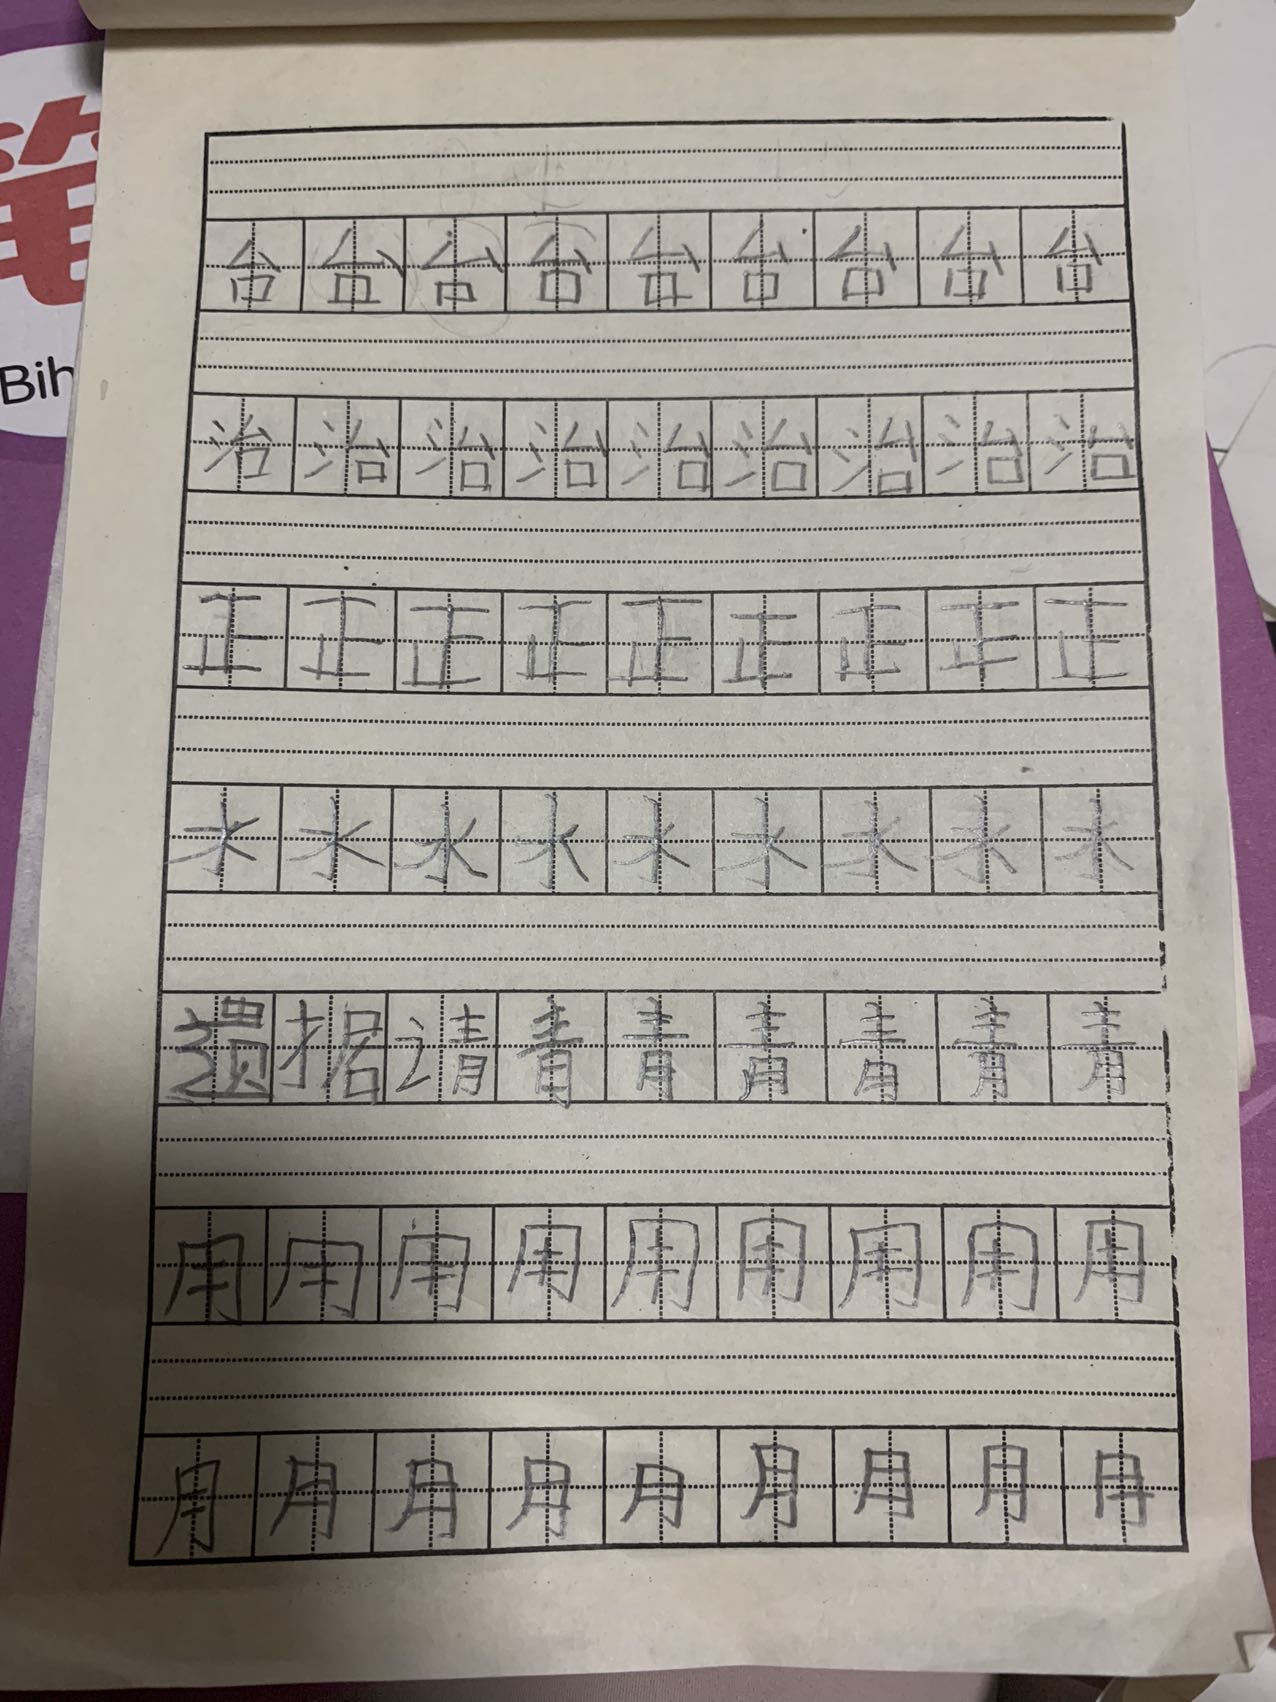 Bih
台台台台台台台台台
治治治治治治治治治
正正正正正正正正正
水水水水水水水水水
遗据请青青青青青青
用用用用用用用用用
月月月月月月月月月